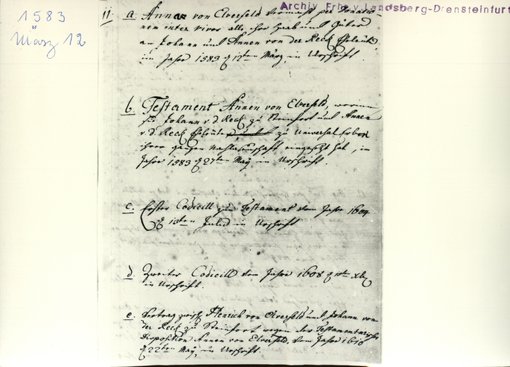 1583
März 12
Archiv Frhr. v. Landsberg-Drensteinfurt
11 a Anna von Elverfeld vermacht per donatio-
nem inter vivos alle ihr Haab und Güter
an Johann und Annen von der Reck Eheleute
im Jahr 1583 12ten März in Urschrift
b Testament Annen von Elverfeld, worinn
sie Johann v. d. Reck zu Steinfort und Annen
v. d. Reck Eheleute zu Universal Erben
ihrer ganzen Nachlassenschaft eingesetzt hat, im
Jahre 1583 27ten May in Urschrift
c Erster Codicill zum Testament vom Jahr 1604
18ten Julii in Urschrift
d Zweiter Codicill vom Jahre 1608
in Urschrift
e Vertrag zwischen Henrich von Elverfeld und Johann von
der Reck zu Steinfort wegen der Testamentarischen
Disposition Annen von Elverfeld, vom Jahre 1610
22ten May, in Urschrift.